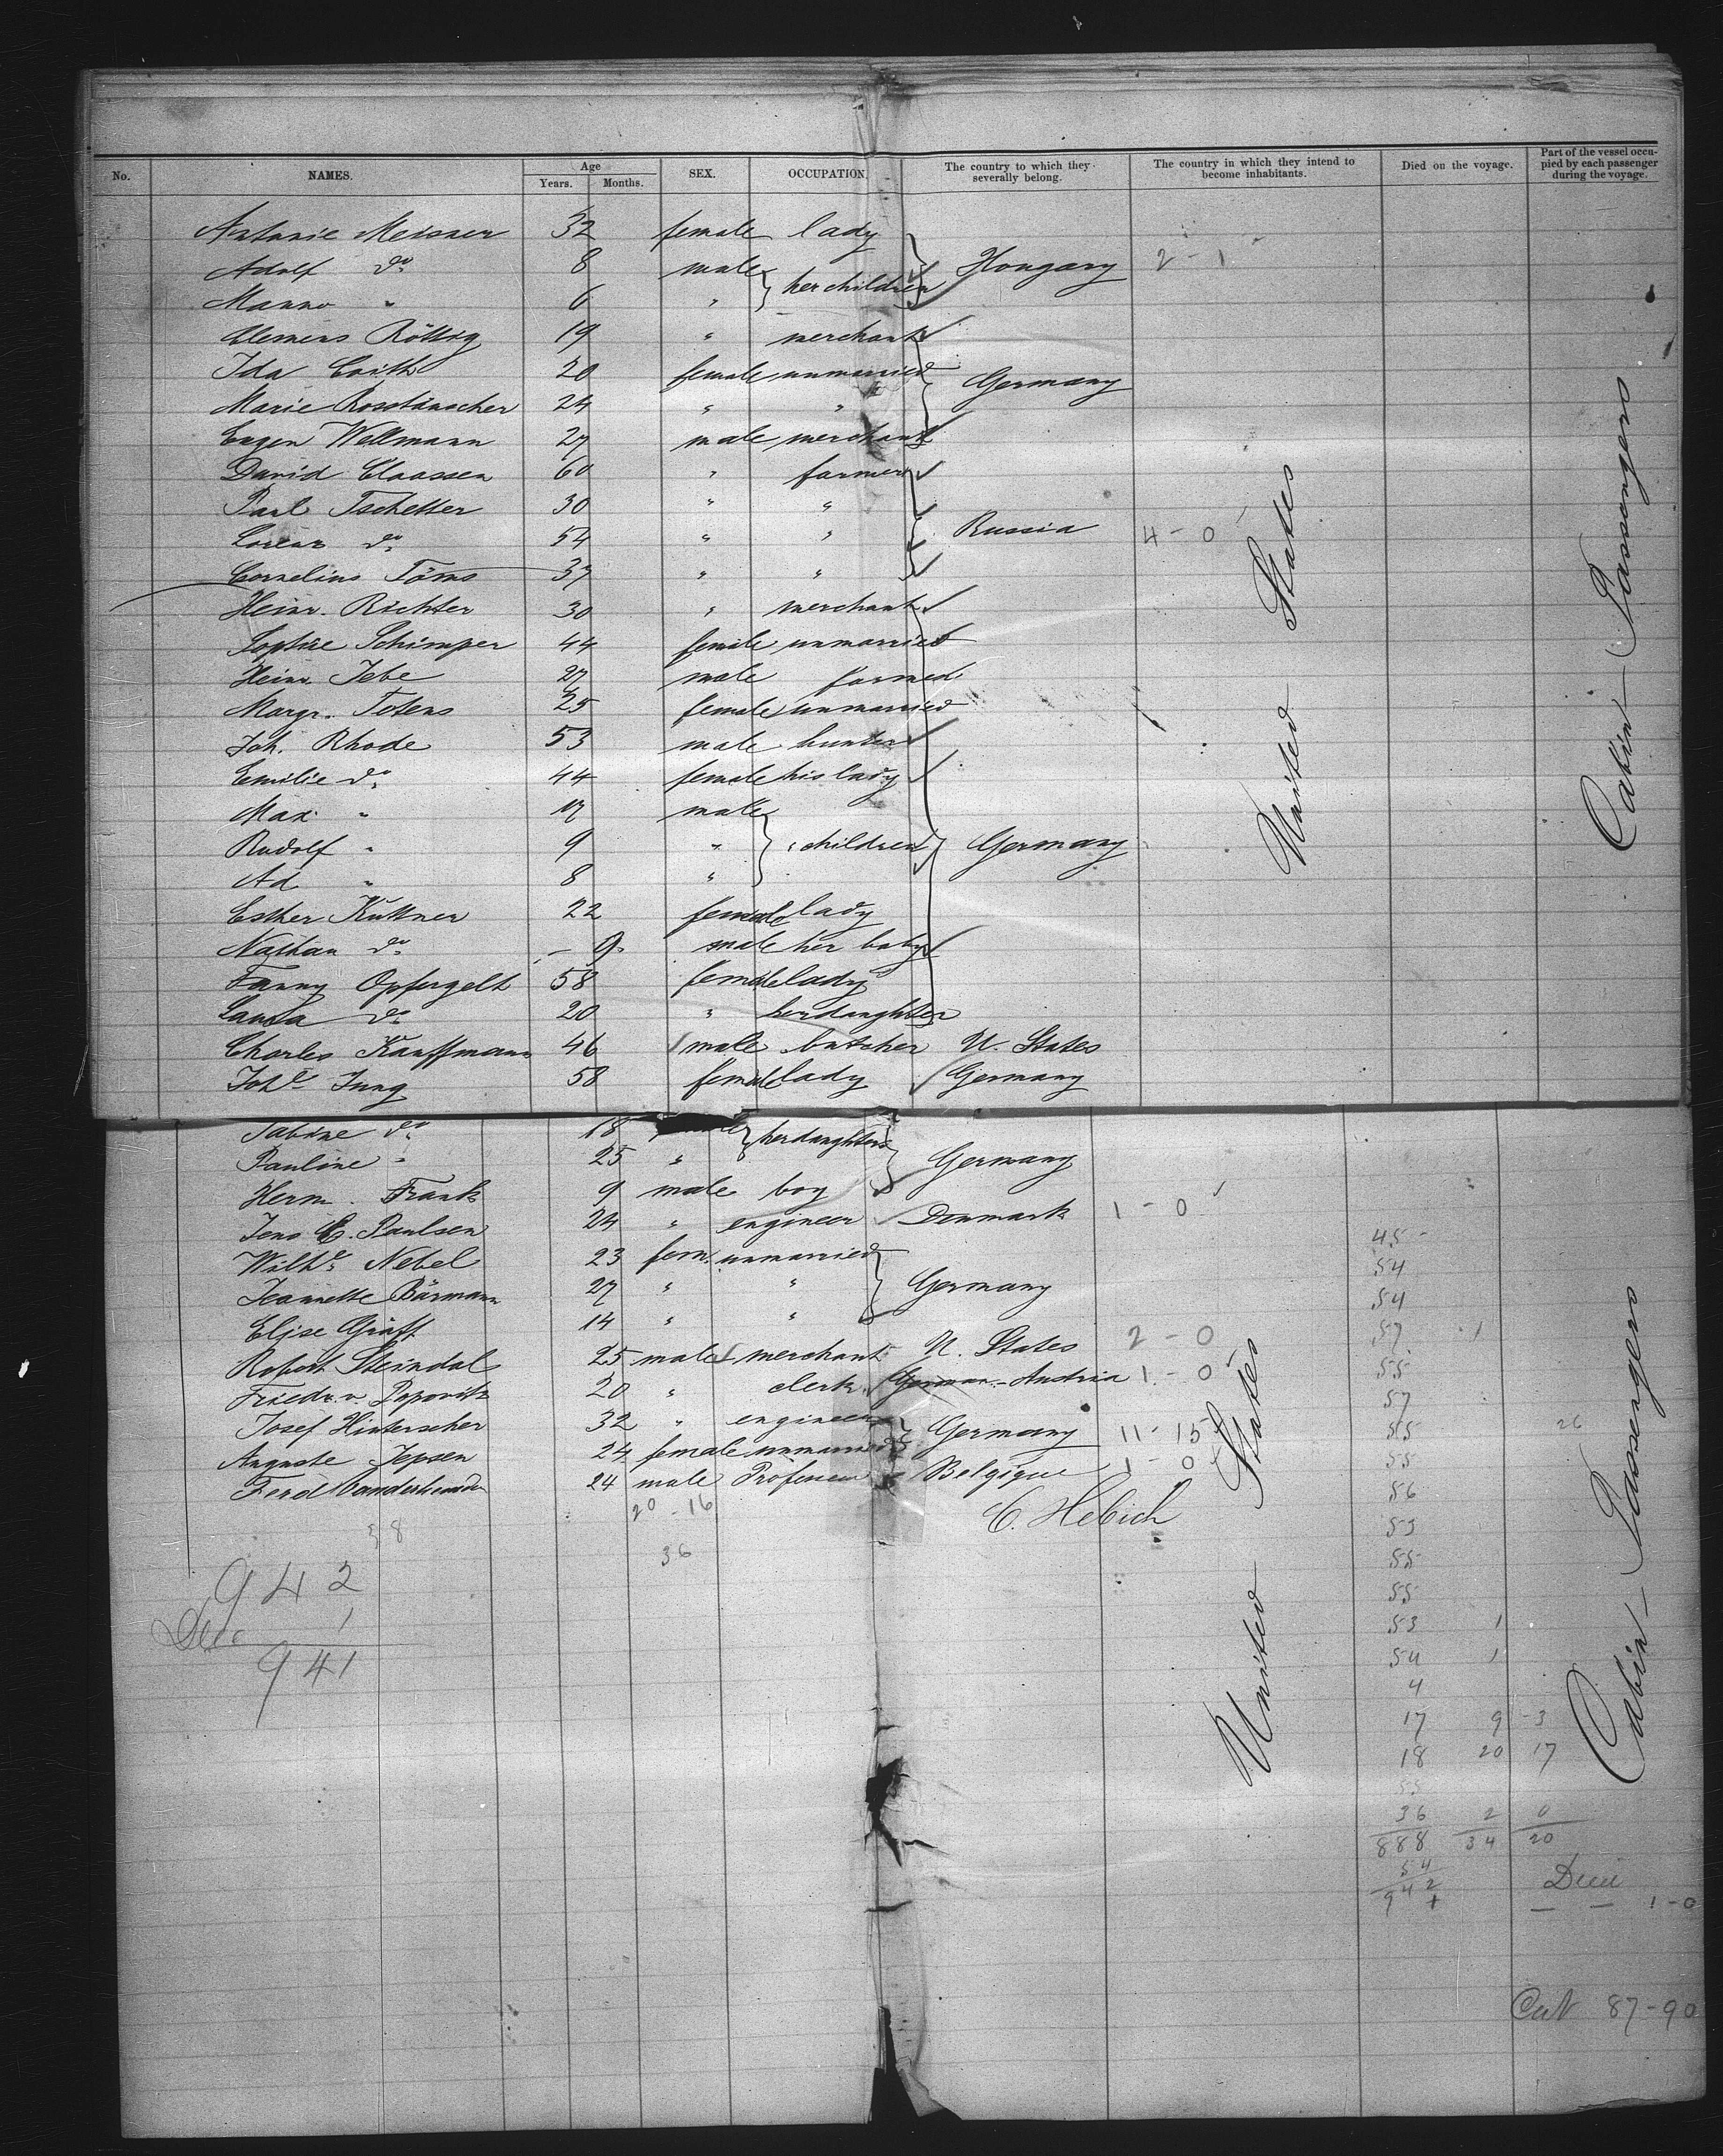 No. NAMES. Age Years. Months. SEX. OCCUPATION. The country to which they severally belong. The country in which they intend to become inhabitants. Died on the voyage. Part of the vessel occupied by each passenger during the voyage.
Antonie Meisner 32 female lady
Adolf do 8 male her children Hongary 2 - 1
Manno " 6 "
Clemens Röttig 19 " merchant
Ida 20 female unmarried Germany
Marie 24 " "
Eugen Wellmann 27 male merchant
David Claassen 60 " farmer
Paul Tschetter 30 " "
Lorenz do 54 " " Russia 4 - 0
Cornelius Töws 37 " "
Heinr. Richter 30 " merchant
Sophie Schimper 44 female unmarried
Heinr. Tebe 27 male farmer
Margr. Totens 25 female unmarried
Joh. Rhode 53 male hunter
Emilie do 44 female his lady
Max " 17 male
Rudolf " 9 " children Germany
Ad " 8 "
Esther Kuttner 22 female lady
Nathan do - 9 male her baby
Fanny Opfergelt 58 female lady
Laura do 20 " her daughter
Charles Kauffmann 46 male butcher U. States
Johe Jung 58 female lady Germany
United States
Cabin Passengers
Sabine do 18 her daughters
Pauline " 25 " Germany
Herm. Frank 9 male boy
Jens C. Paulsen 24 " engineer Denmark 1 - 0
Wilhe Nebel 23 fem. unmarried
Jeannette Bärmann 27 " " Germany
Elise Gräff 14 " "
Robert Steindal 25 male merchant U. States 2 - 0
Friedr. v. Popovitz 20 " clerk German - Austria 1 - 0
Josef Hinterscher 32 " engineer Germany 11 - 15
Auguste Jepsen 24 female unmarried
Ferd 24 male Professor Belgique 1 - 0
20 - 16
C. Hebich
38
36
942
1
941
United States
Cabin Passengers
45
54
54
57 1
55
57
55 26
55
56
53
55
55
53 1
54 1
4
17 9 - 3
18 20 17
55
36 2 0
888 34 20
54
942
1 - 0
87 - 90